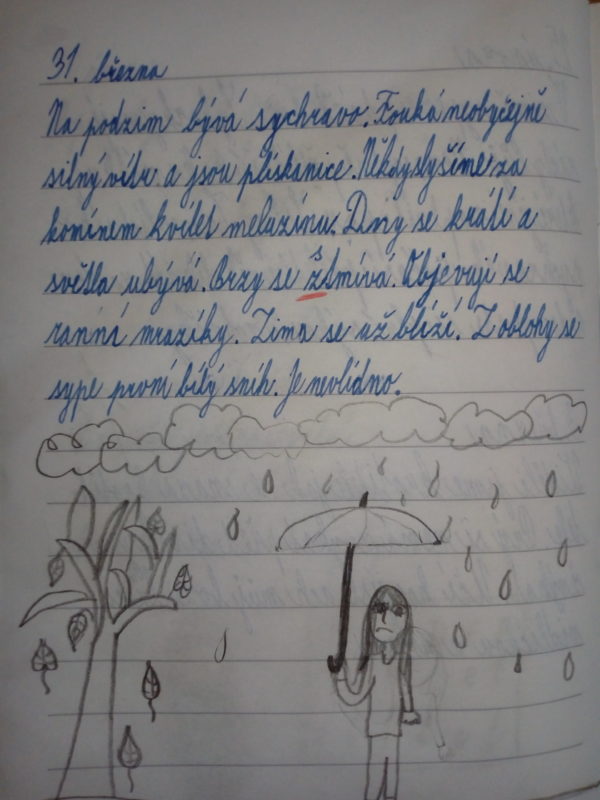 31. března
Na podzim bývá sychravo. Fouká neobyčejně
silný vítr a jsou plískanice. Někdy slyšíme za
komínem kvílet meluzínu. Dny se krátí a
světla ubývá. Brzy se s
ztmívá. Objevují se
ranní mrazíky. Zima se už blíží. Z oblohy se
sype první bílý sníh. Je nevlídno.